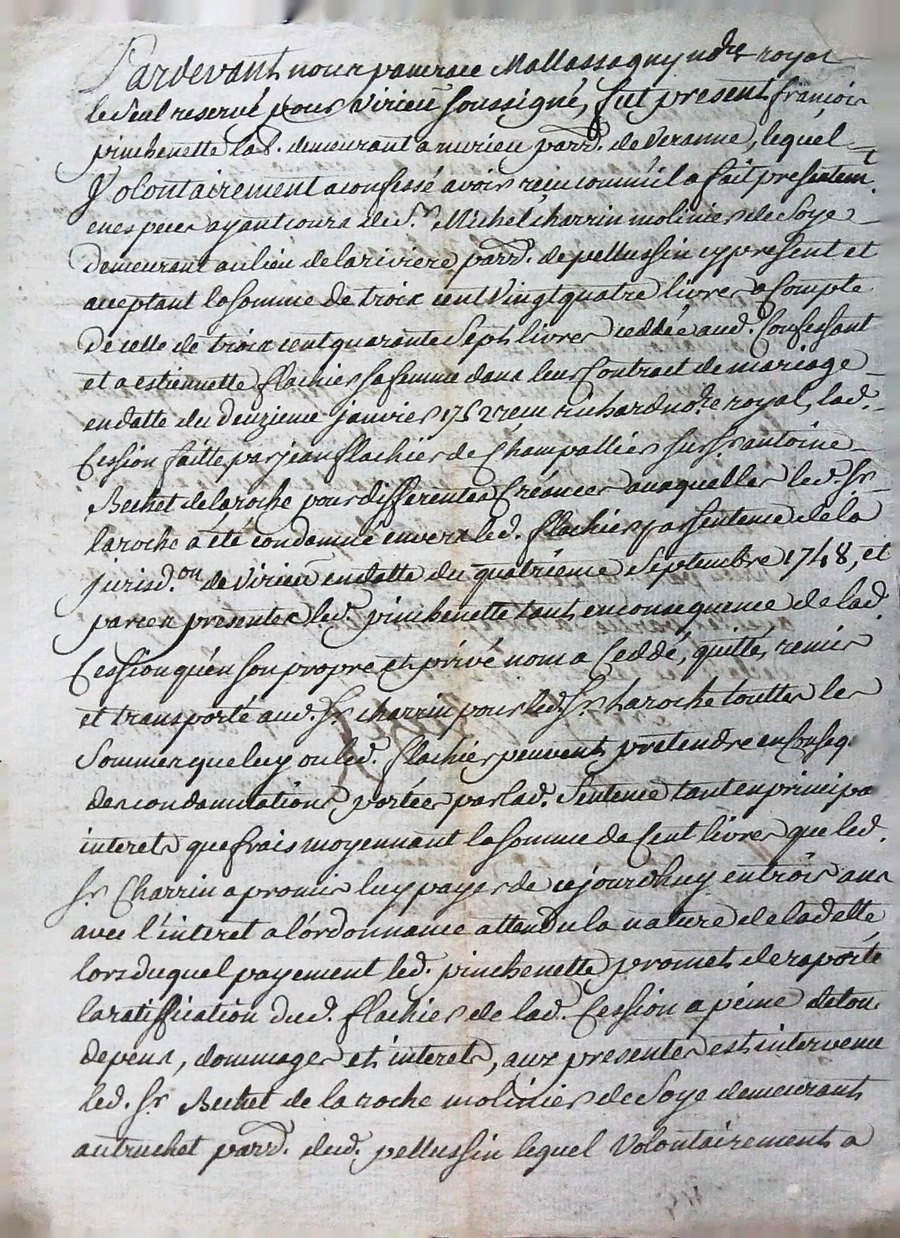 Pardevant nous Mallassagny no.re royal
le seul reservé pour Virieu soussigné, fut present françois
pinchenette lab.r demeurant a murieu parr.e de Veranne, lequel
Volontairement a confessé avoir reçu comm'il a fait presentem.t
en especes ayant cours de S.r Michel Charrin molinier de Soye
demeurant au lieu de lariviere parr.e de pellussin cy present et
acceptant la somme de troix cent vingt quatre livres a Compte
de celle de troix cent quarante Sept livres ceddée aud. Confessant
et a estiennette flachier sa femme dans leur Contract de mariage
en datte du deuzieme janvier 1752 reçu richard no.re royal, lad.
Cession faitte par jean flachier de Champallier sur s.r antoine
Bechet de laroche pour differentes Créances auxquelles led. S.r
laroche a été condamné envers led. flachier par sentence de la
jurisd.on de Virieu en datte du quatriéme Septembre 1748, et
par ces presentes led. pinchenette tant en consequence de lad.
Cession qu'en son propre et privé nom a Ceddé, quitté, remis
et transporté aud. S.r charrin pour led. S.r Laroche touttes les
Sommes que luy ou led. flachier peuvent pretendre en Conseq.
des condamnations portées par lad. Sentence tant en principa
interets que frais moyennant la somme de Cent livres que led.
S.r Charrin a promis luy payer de ce jourdhuy en trois ans
avec l'interet a l'ordonnance attendu la nature de la dette
lors duquel payement led. pinchenette promet de raporté
la ratiffication dud. flachier de lad. Cession a peine de tou
depens, dommages et interets, aux presentes est intervenu
led. S.r Bechet de la roche molinier de Soye demeurant
au truchet parr.e dud. pellussin lequel Volontairement a